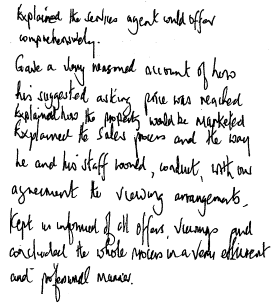 Explained the services agent would offer
comprehensively.
Gave a very reasoned account of how
his suggested asking price was reached
Explained how the property would be marketed
Explained the sales process and the way
he and his staff would, conduct, with our
agreement the viewing arrangements.
Kept us informed of all offers, viewings and
concluded the whole process in a very efficient
and professional manner.